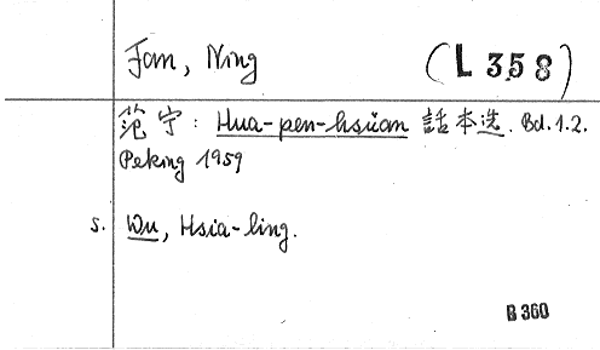 Fan, Ning (L 358)
范宁: Hua-pen-hsüan 話本选. Bd. 1.2.
Peking 1959
s. Wu, Hsia-ling.
B 360